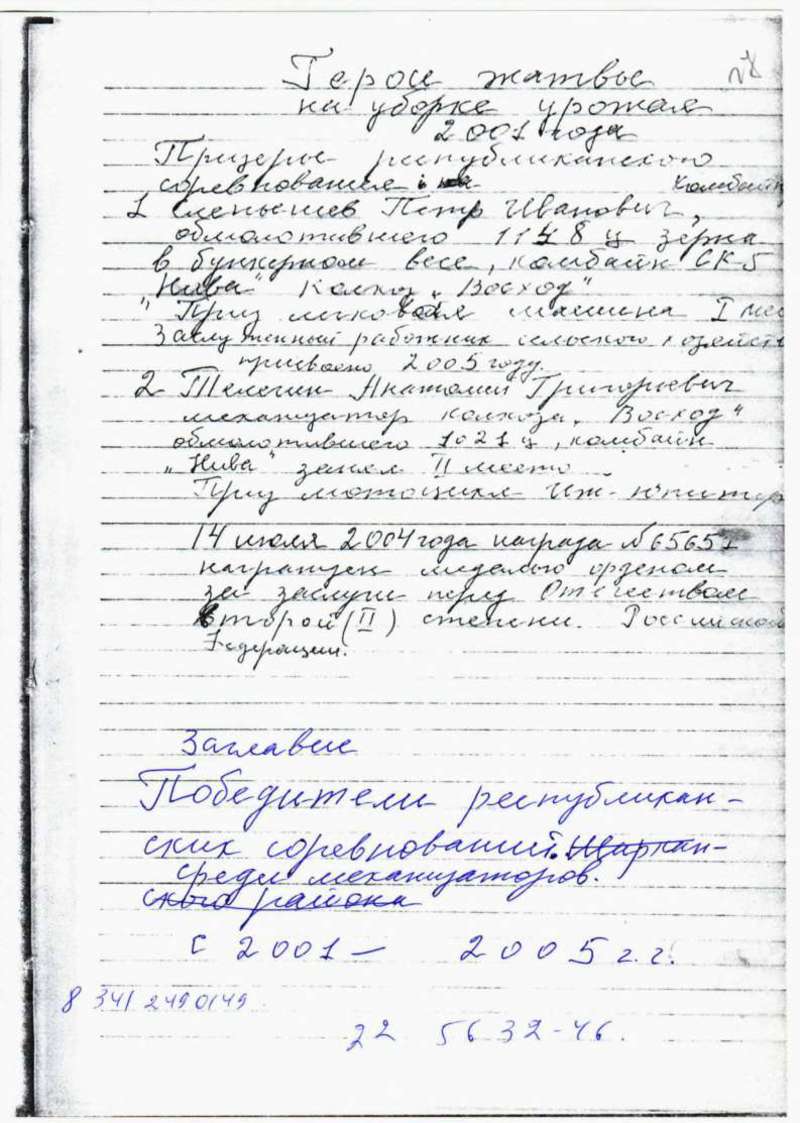 Герои жатвы
на уборке урожая
2001 года
Призеры республиканского
соревнования
Комбайн
1 Петр Иванович,
обмолотившего 1148 ц зерна
в бункерном весе, комбайн СК-5
"Нива" Колхоз „Восход"
"Приз легковая машина I мес
Заслуженный работник сельского хозяйств
присвоено 2005 году.
2 Телегин Анатолий Григорьевич
механизатор колхоза „Восход"
обмолотившего 1021 ц, комбайн
„Нива" занял II место
Приз мотоцикл Иж-Юпитер
14 июля 2004 года награда №65651
награжден медалью орденом
за заслуги перед Отечеством
второй (II) степени. Российской
Федерации.
Заглавие
Победители республикан-
ских соревнований. Шаркан-
среди механизаторов.
ского района
с 2001 — 2005 г.г.
8 341 2490149
22 56 32-46.